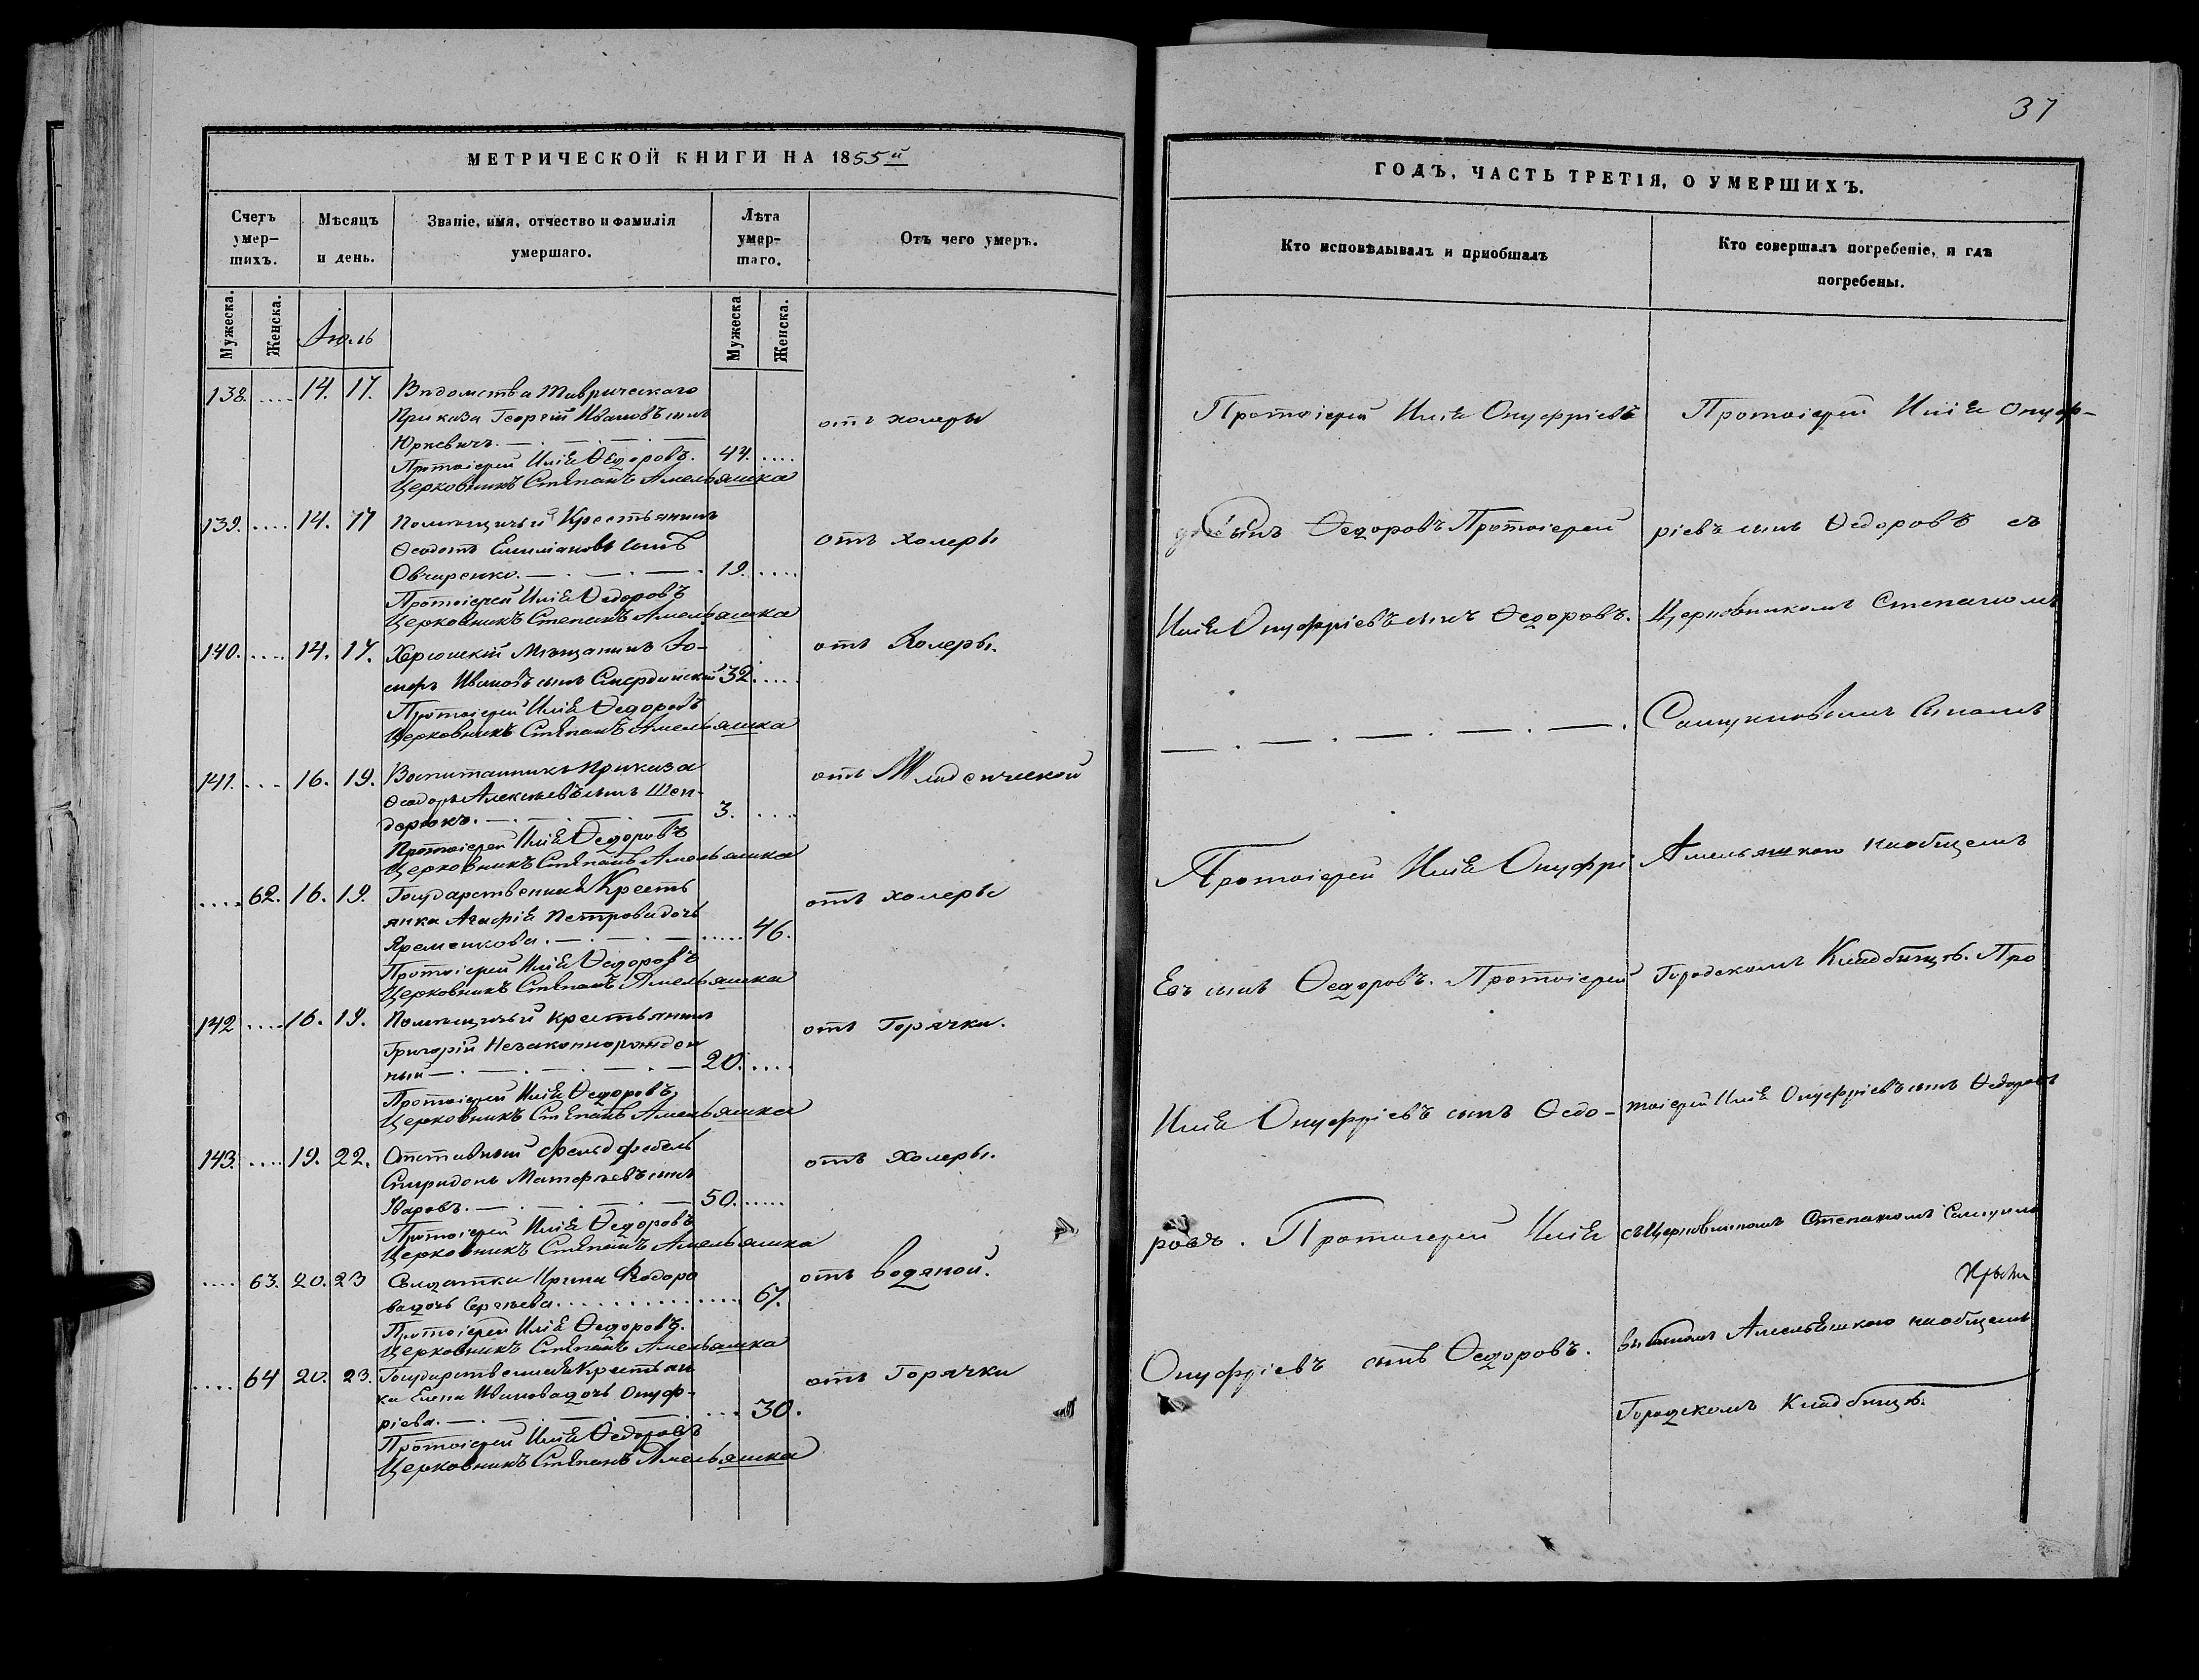 МЕТРИЧЕСКОЙ КНИГИ НА 1855й
Счетъ умер-шихъ.
Мѣсяцъ и день.
Званіе, имя, отчество и фамилія умершаго.
Лѣта умер-шаго.
Отъ чего умеръ.
Мужеска.
Женска.
Мужеска
Женска.
Іюль
138. .... 14. 17. Вѣдомства Таврическаго
Приказа Георгій Ивановъ сынъ
Юркевичъ. 44. .... отъ холеры
Протоіерей Илія Ѳедоровъ.
Церковникъ Степанъ Амельяшка
139. .... 14. 17 Помѣщичій Крестьянинъ
Ѳеодотъ Емиліановъ сынъ
Овчаренко. 19. .... отъ холеры
Протоіерей Илія Ѳедоровъ
Церковникъ Степанъ Амельяшка
140. .... 14. 17. Херсонскій Мѣщанинъ Іо-
сифъ Ивановъ сынъ 32. .... отъ Холеры.
Протоіерей Илія Ѳедоровъ
Церковникъ Степанъ Амельяшка
141. .... 16. 19. Воспитанникъ Приказа
Ѳеодоръ Алексѣевъ сынъ Шен-
дерюкъ. 3. .... отъ Младенческой
Протоіерей Илія Ѳедоровъ
Церковникъ Степанъ Амельяшка
.... 62. 16. 19. Государственная Кресть
янка Агафія Петрова дочь
Яременкова. .... 46. отъ холеры
Протоіерей Илія Ѳедоровъ
Церковникъ Степанъ Амельяшка
142 .... 16. 19. Помѣщичій крестьянинъ
Григорій Незаконнорожден
ный 20. .... отъ Горячки.
Протоіерей Илія Ѳедоровъ
Церковникъ Степанъ Амельяшка
143. .... 19. 22. Отставный Фельдфебель
Спиридонъ Матфѣевъ сынъ
Уваровъ. 50. .... отъ Холеры.
Протоіерей Илія Ѳедоровъ
Церковникъ Степанъ Амельяшка
.... 63. 20. 23 Солдатка Ирина Ѳеодоро
ва дочь Сергѣева .... 67. отъ водяной.
Протоіерей Илія Ѳедоровъ.
Церковникъ Степанъ Амельяшка
.... 64 20. 23. Государственная Крестьян
ка Елена Иванова дочь Онуф-
ріева. .... 30. отъ Горячки
Протоіерей Илія Ѳедоровъ
Церковникъ Степанъ Амельяшка
37
ГОДЪ, ЧАСТЬ ТРЕТІЯ, О УМЕРШИХЪ.
Кто исповѣдывалъ и пріобщалъ
Кто совершалъ погребеніе, и гдѣ погребены.
Протоіерей Илія Онуфріевъ
Сынъ Ѳедоровъ Протоіерей
Илія Онуфріевъ сынъ Ѳедоровъ.
Протоіерей Илія Онуфрі
Евъ сынъ Ѳедоровъ. Протоіерей
Илія Онуфріевъ сынъ Ѳедо-
ровъ. Протоіерей Илія
Онуфріевъ сынъ Ѳедоровъ.
Протоіерей Илія Онуф-
ріевъ сынъ Ѳедоровъ съ
Церковникомъ Степаномъ
Самуиловымъ Сыномъ
Амельяшкою на общемъ
Городскомъ Кладбищѣ. Про
тоіерей Илія Онуфріевъ сынъ Ѳедоровъ
съ Церковникомъ Степаномъ Самуило
вымъ сыномъ Амельяшкою на общемъ
Городскомъ Кладбищѣ.